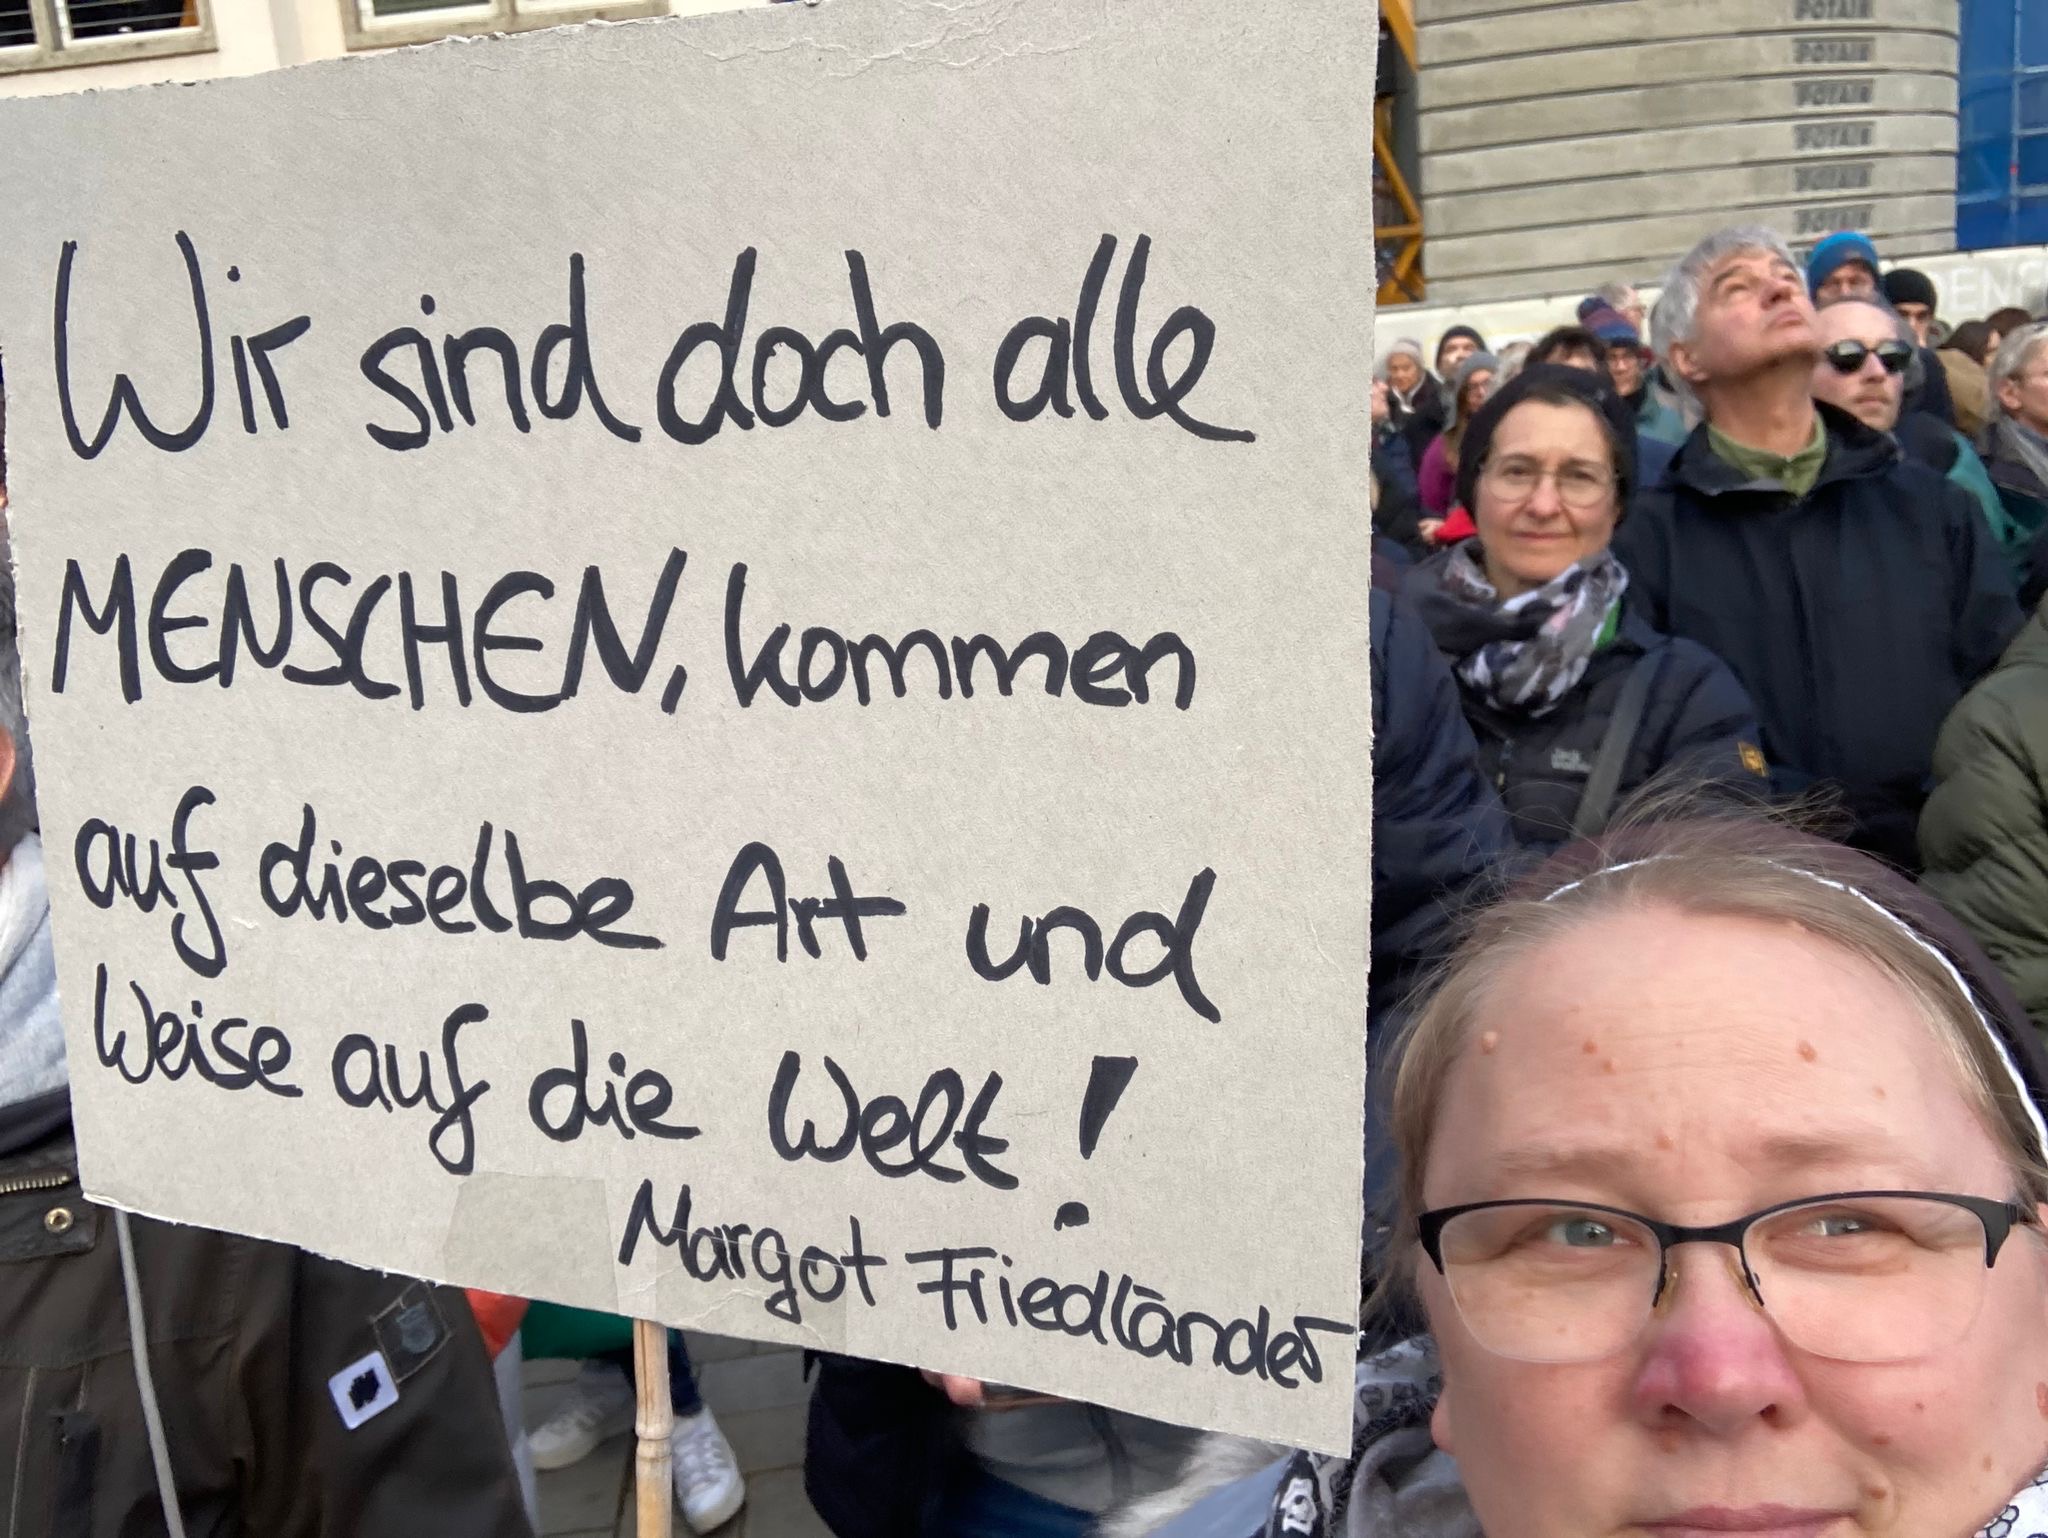 Wir sind doch alle
MENSCHEN, kommen
auf dieselbe Art und
Weise auf die Welt!
Margot Friedländer
POTAIN
POTAIN
POTAIN
POTAIN
POTAIN
POTAIN
Jack
Wolfskin